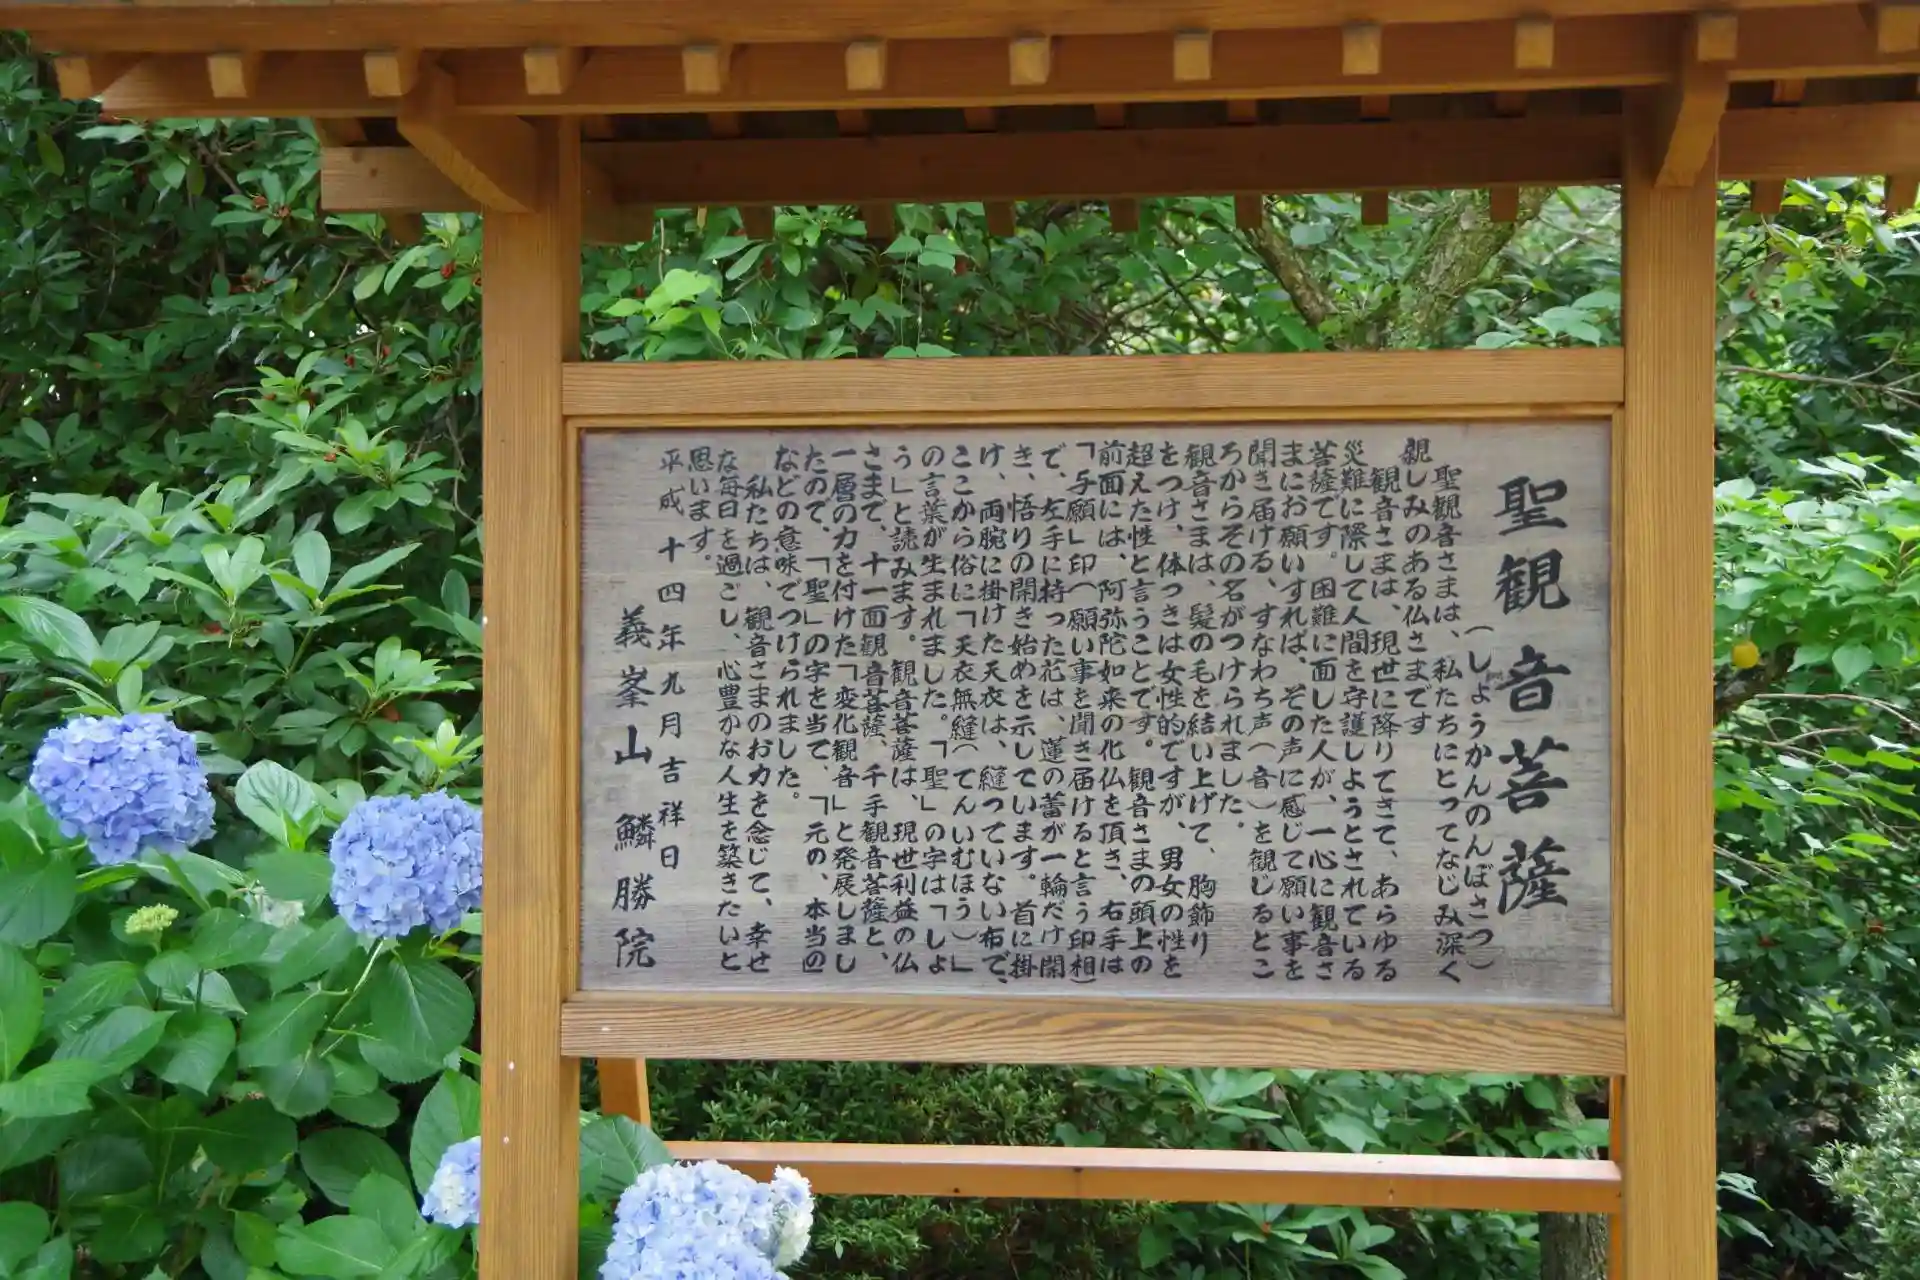 聖観音菩薩
（しょうかんのんぼさつ）
聖観音さまは、私たちにとってなじみ深く
親しみのある仏さまです
観音さまは、現世に降りてきて、あらゆる
災難に際して人間を守護しようとされている
菩薩です。困難に面した人が、一心に観音さ
まにお願いすれば、その声に感じて願い事を
聞き届ける、すなわち声（音）を観じるとこ
ろからその名がつけられました。
観音さまは、髪の毛を結い上げて、胸飾り
をつけ、体つきは女性的ですが、男女の性を
超えた性と言うことです。観音さまの頭上の
前面には、阿弥陀如来の化仏を頂き、右手は
「与願」印（願い事を聞き届けると言う印相）
で、左手に持った花は、蓮の蕾が一輪だけ開
き、悟りの開き始めを示しています。首に掛
け、両腕に掛けた天衣は、縫っていない布で、
ここから俗に「天衣無縫（てんいむほう）」
の言葉が生まれました。「聖」の字は「しょ
う」と読みます。観音菩薩は、現世利益の仏
さまで、十一面観音菩薩、千手観音菩薩と、
一層の力を付けた「変化観音」と発展しまし
たので、「聖」の字を当て、「元の、本当の」
などの意味でつけられました。
私たちは、観音さまのお力を念じて、幸せ
な毎日を過ごし、心豊かな人生を築きたいと
思います。
平成十四年九月吉祥日
義峯山　鱗勝院